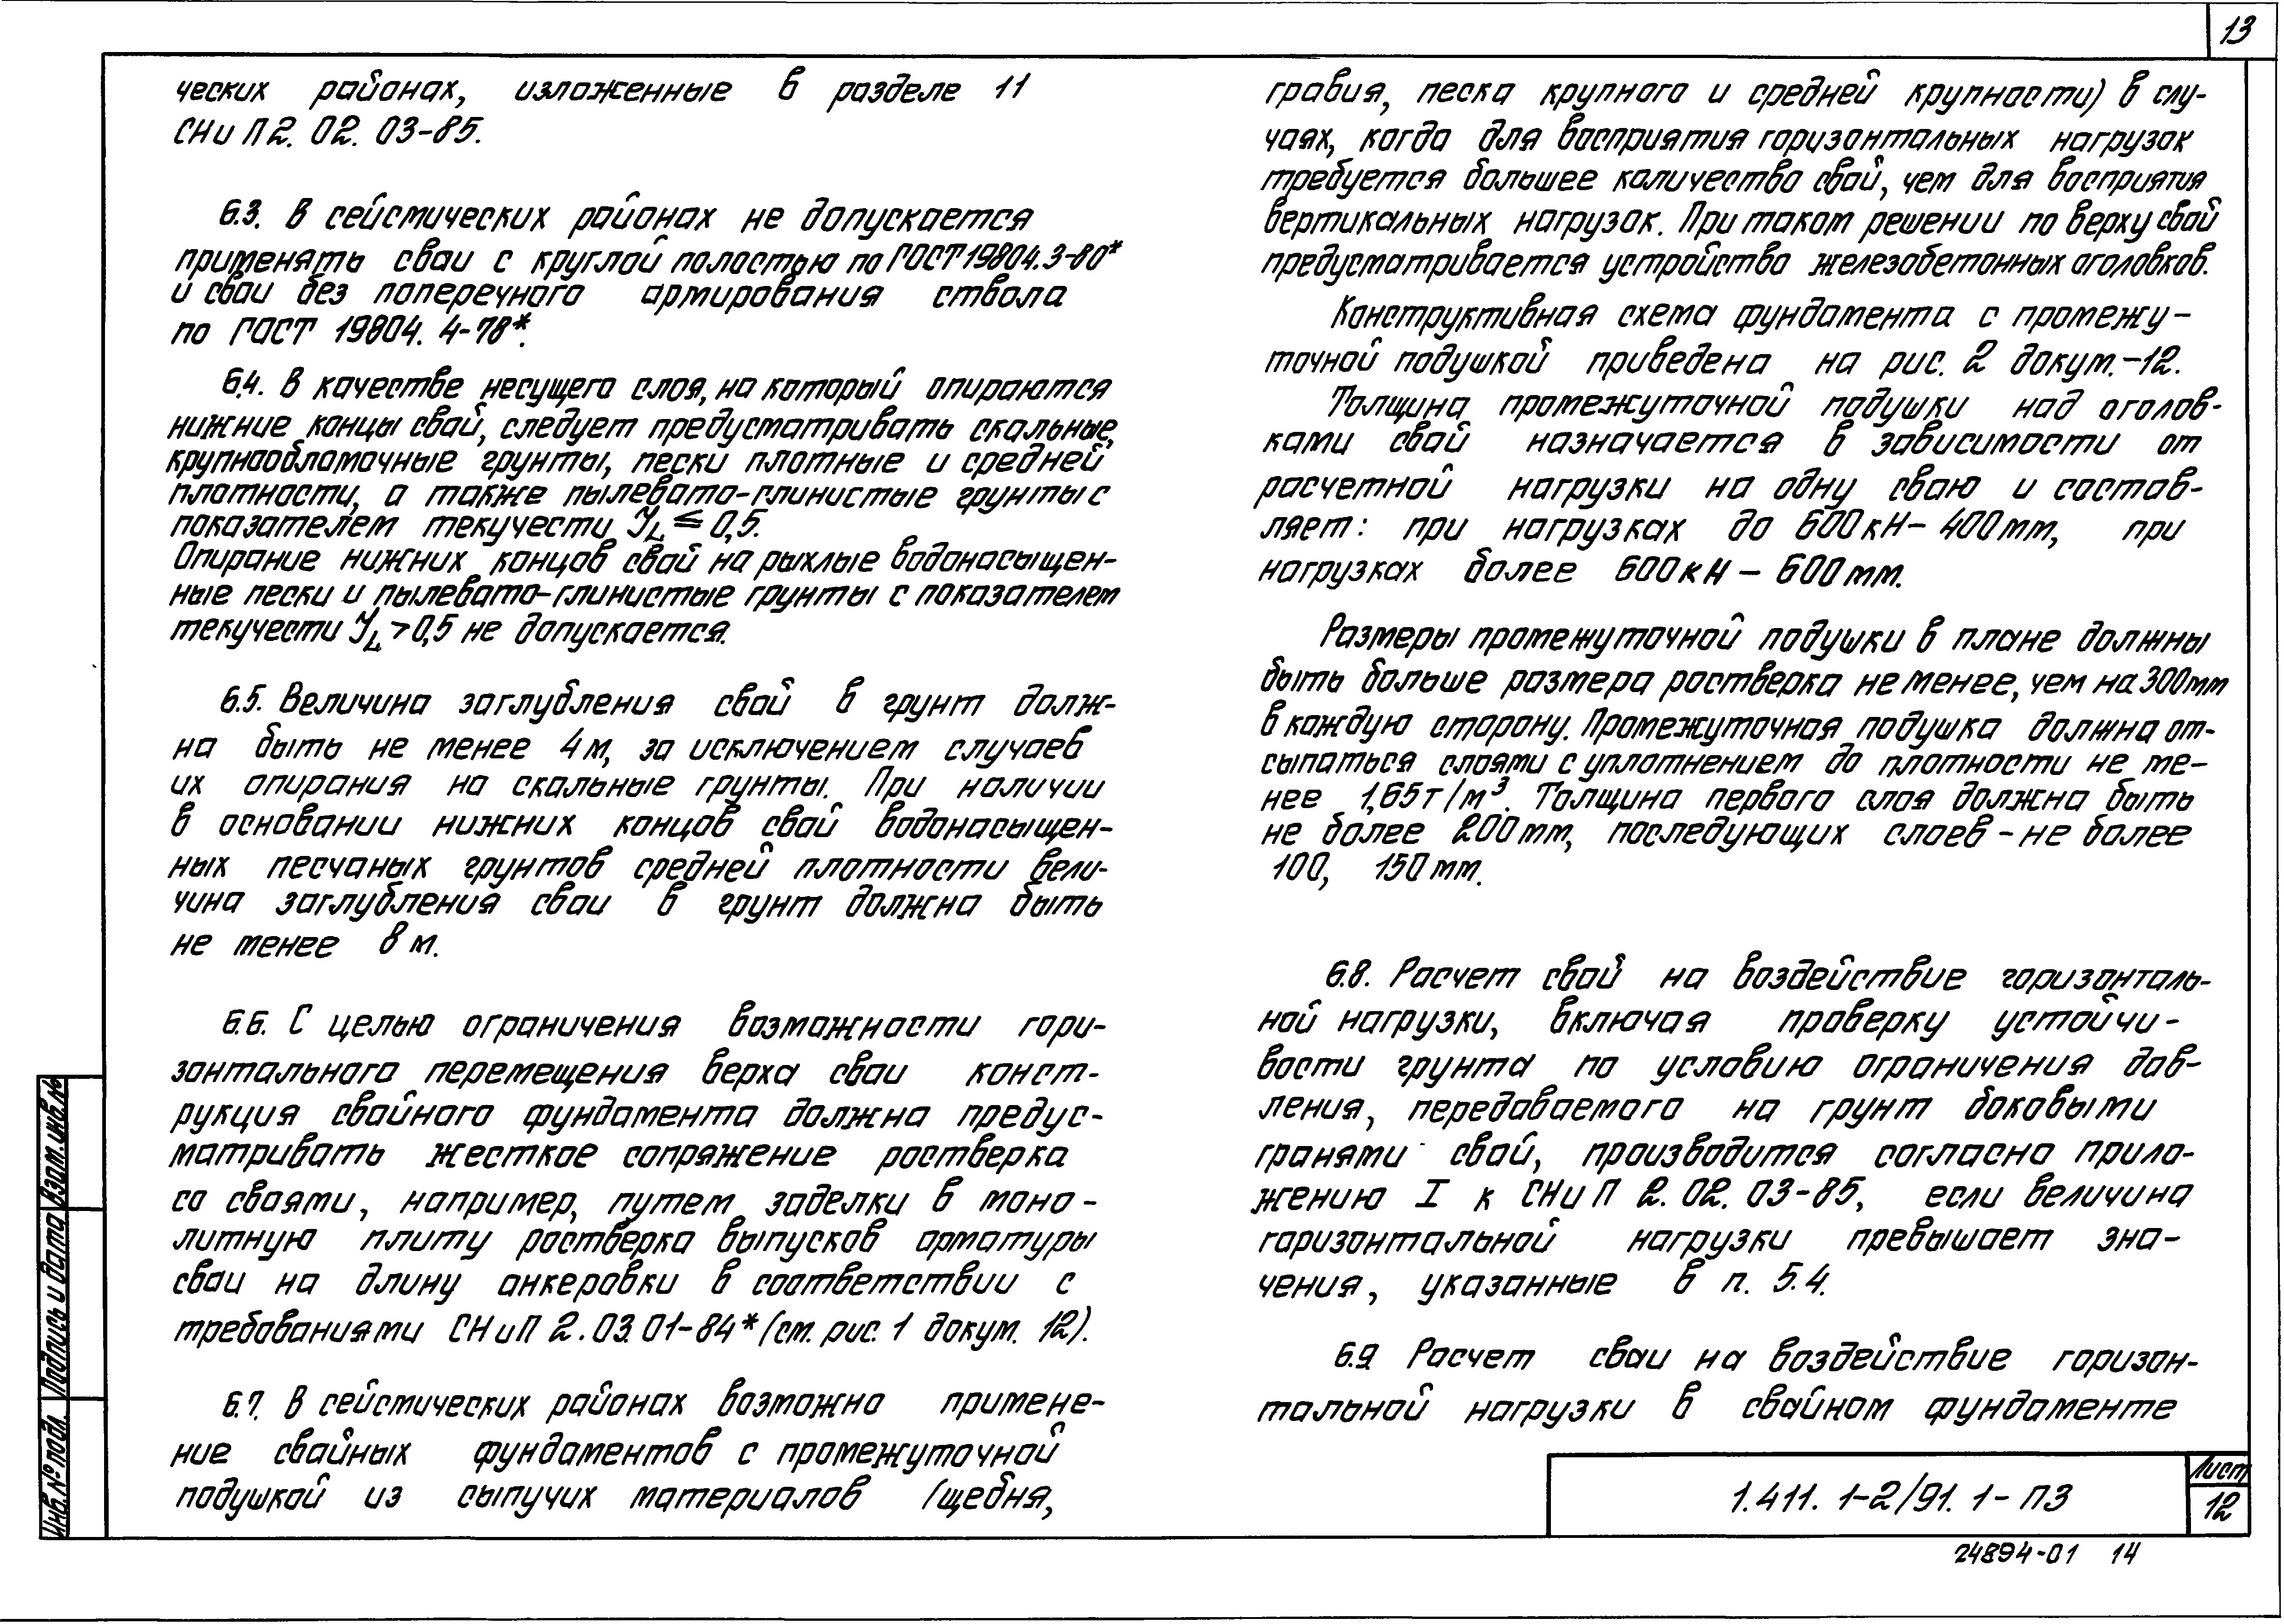 13
ческих районах, изложенные в разделе 11
СНиП 2. 02. 03-85.
6.3. В сейсмических районах не допускается
применять сваи с круглой полостью по ГОСТ 19804.3-80*
и сваи без поперечного армирования ствола
по ГОСТ 19804. 4-78*.
6.4. В качестве несущего слоя, на который опираются
нижние концы свай, следует предусматривать скальные,
крупнообломочные грунты, пески плотные и средней
плотности, а также пылевато-глинистые грунты с
показателем текучести JL ≤ 0,5.
Опирание нижних концов свай на рыхлые водонасыщен-
ные пески и пылевато-глинистые грунты с показателем
текучести JL > 0,5 не допускается.
6.5. Величина заглубления свай в грунт долж-
на быть не менее 4 м, за исключением случаев
их опирания на скальные грунты. При наличии
в основании нижних концов свай водонасыщен-
ных песчаных грунтов средней плотности вели-
чина заглубления сваи в грунт должна быть
не менее 8 м.
6.6. С целью ограничения возможности гори-
зонтального перемещения верха сваи конст-
рукция свайного фундамента должна предус-
матривать жесткое сопряжение ростверка
со сваями, например, путем заделки в моно-
литную плиту ростверка выпусков арматуры
сваи на длину анкеровки в соответствии с
требованиями СНиП 2.03.01-84* (см. рис. 1 докум. 12).
6.7. В сейсмических районах возможно примене-
ние свайных фундаментов с промежуточной
подушкой из сыпучих материалов (щебня,
гравия, песка крупного и средней крупности) в слу-
чаях, когда для восприятия горизонтальных нагрузок
требуется большее количество свай, чем для восприятия
вертикальных нагрузок. При таком решении по верху свай
предусматривается устройство железобетонных оголовков.
Конструктивная схема фундамента с промежу-
точной подушкой приведена на рис. 2 докум.-12.
Толщина промежуточной подушки над оголов-
ками свай назначается в зависимости от
расчетной нагрузки на одну сваю и состав-
ляет: при нагрузках до 600 кН - 400 мм, при
нагрузках более 600 кН - 600 мм.
Размеры промежуточной подушки в плане должны
быть больше размера ростверка не менее, чем на 300 мм
в каждую сторону. Промежуточная подушка должна от-
сыпаться слоями с уплотнением до плотности не ме-
нее 1,65 т/м³. Толщина первого слоя должна быть
не более 200 мм, последующих слоев - не более
100, 150 мм.
6.8. Расчет свай на воздействие горизонталь-
ной нагрузки, включая проверку устойчи-
вости грунта по условию ограничения дав-
ления, передаваемого на грунт боковыми
гранями свай, производится согласно прило-
жению I к СНиП 2. 02. 03-85, если величина
горизонтальной нагрузки превышает зна-
чения, указанные в п. 5.4.
6.9 Расчет сваи на воздействие горизон-
тальной нагрузки в свайном фундаменте
Взам. инв. №
Подпись и дата
Инв. № подл.
1.411. 1-2/91. 1-ПЗ
Лист
12
24894-01 14